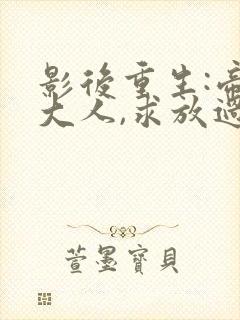 影後重生:帝
大人,求放過
萱墨寶貝